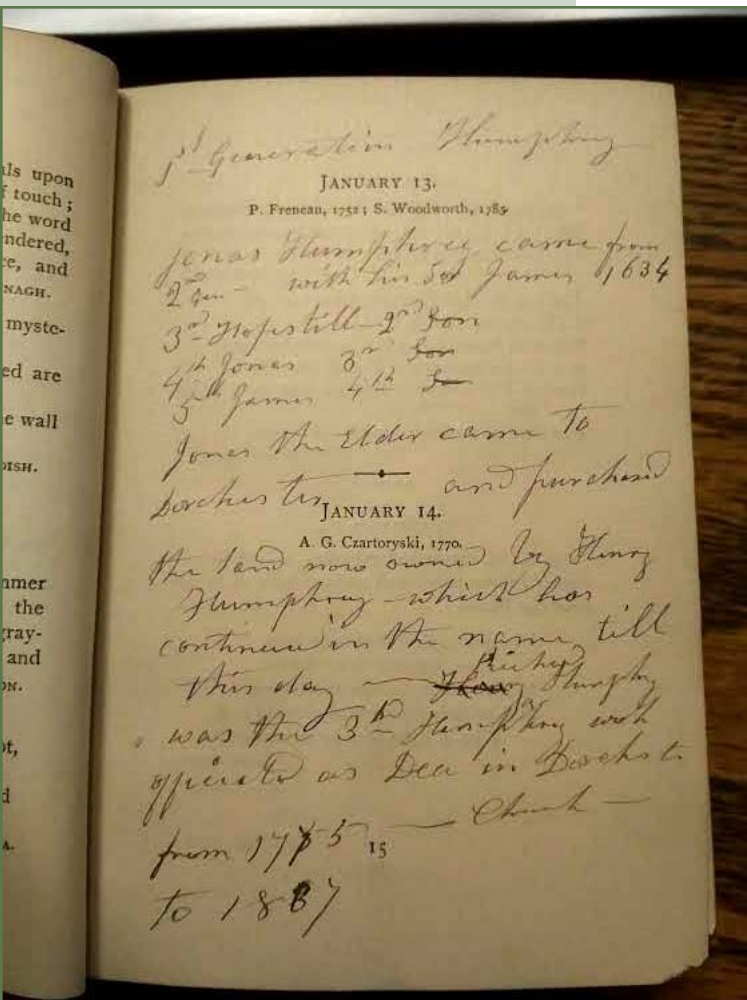 ls upon
f touch;
he word
ndered,
ce, and
NAGH.
myste-
ed are
e wall
DISH.
nmer
the
gray-
and
ON.
ot,
d
A.
1st Generation Humphrey
JANUARY 13.
P. Freneau, 1752; S. Woodworth, 1785.
Jonas Humphrey came from
2nd Gen - with his Son James 1634
3rd Hopestill 2nd Son
4th Jonas 3rd Son
5th James 4th
Jonas the Elder came to
Dorchester and purchased
JANUARY 14.
A. G. Czartoryski, 1770.
the land now owned by Henry
Humphrey - which has
continued in the name till
this day — Humphrey
was the 3rd Humphrey
officiated as Dea in Dorchester
from 1775 — Church —
15
to 1887